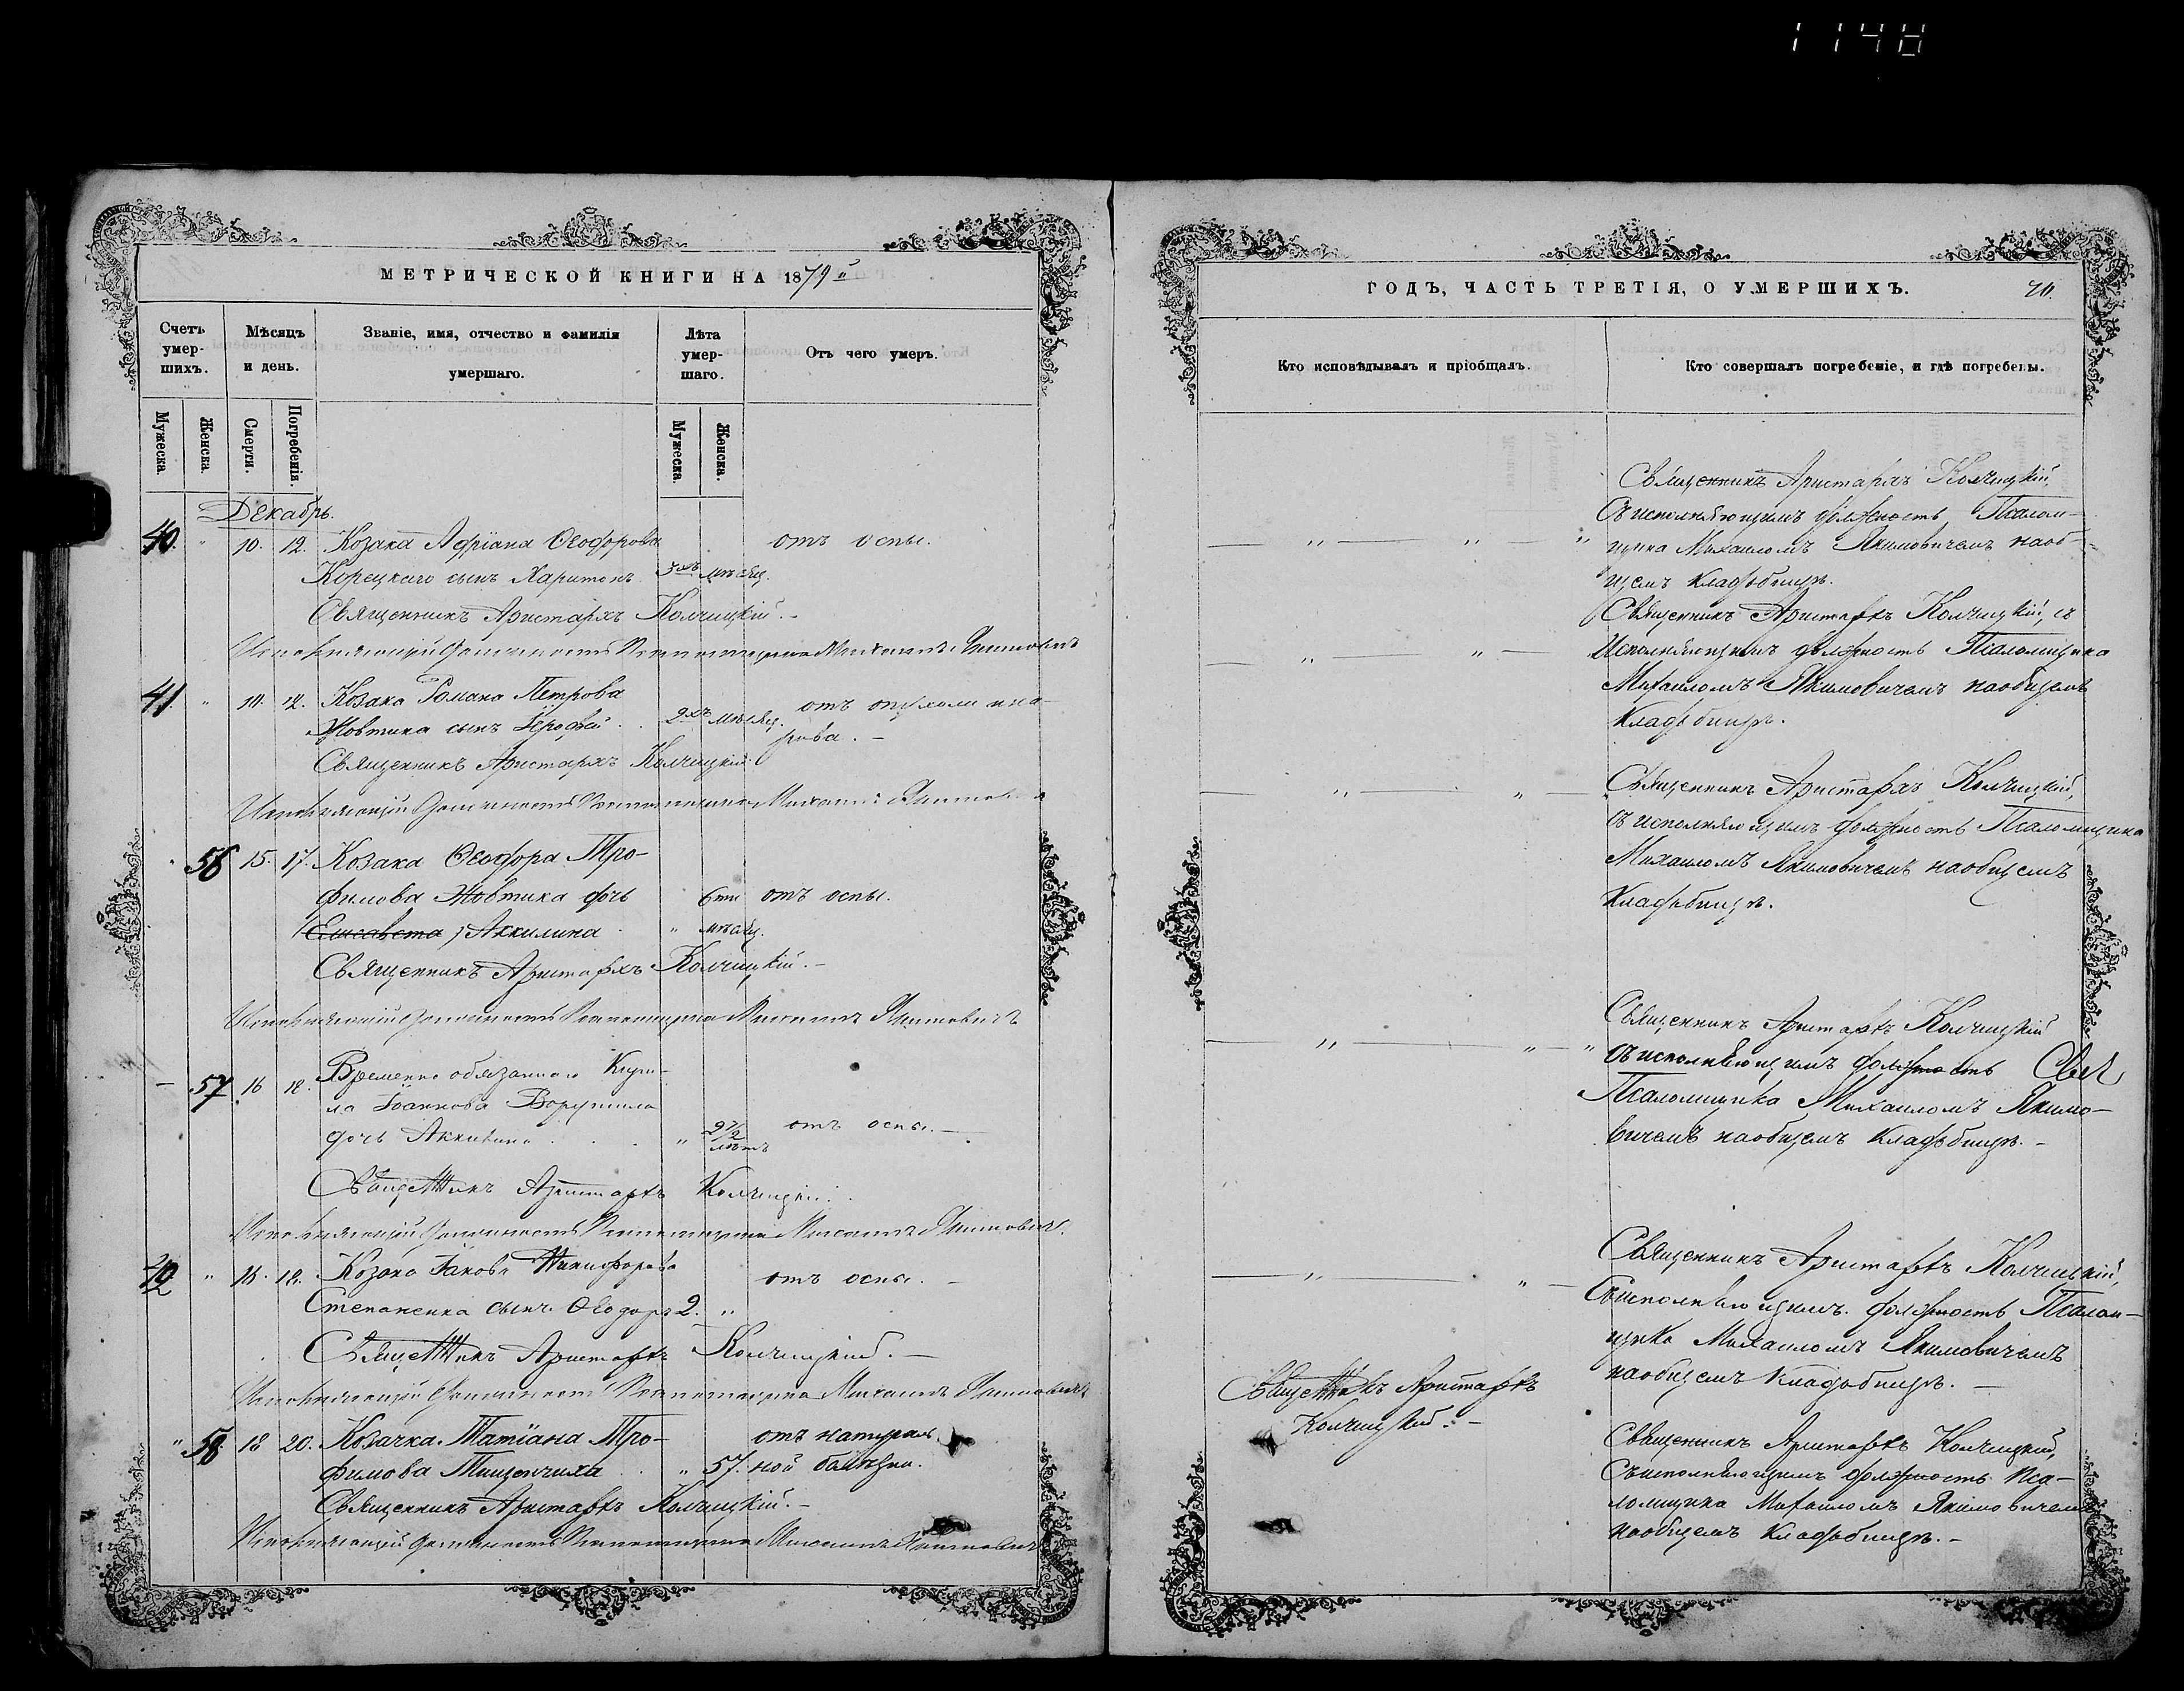 1148
МЕТРИЧЕСКОЙ КНИГИ НА 1879й
Счетъ умер-шихъ.
Мѣсяцъ и день.
Званіе, имя, отчество и фамилія умершаго.
Лѣта умер-шаго.
Отъ чего умеръ.
Мужеска. Женска. Смерти. Погребенія. Мужеска. Женска.
Декабрь.
40. " 10. 12. Козака Адріана Ѳеодорова отъ оспы.
Корецкаго сынъ Харитонъ мѣсяц.
Священникъ Аристархъ Колчицкій.-
Исполняющій должность Псаломщика Михаилъ Якимовичъ
41 " 10. 12. Козака Романа Петрова
Жовтика сынъ Іерофей . 2хъ мѣсяц. отъ
Священникъ Аристархъ Колчицкій
Исполняющій должность Псаломщика Михаилъ Якимовичъ
56 15. 17. Козака Ѳеодора Тро-
фимова Жовтика дочь 6ти отъ оспы.
/Елисавета/ Аккилина " мѣсяц.
Священникъ Аристархъ Колчицкій.-
Исполняющій должность Псаломщика Михаилъ Якимовичъ
57 16 18. Временно обязаннаго Кири-
ла Іоаннова
дочь Аккилина . . . " 2 1/2 лѣтъ отъ оспы.-
Священникъ Аристархъ Колчицкій.
Исполняющій должность Псаломщика Михаилъ Якимовичъ.
42 " 16. 18. Козака Іакова Никифорова отъ оспы. -
Степаненка сынъ Ѳеодоръ 2. "
Священникъ Аристархъ Колчицкій. -
Исполняющій должность Псаломщика Михаилъ Якимовичъ
" 58. 18 20. Козачка Татіана Тро- отъ натураль
фимова . . " 57. ной болѣзни.
Священникъ Аристархъ Колчицкій.-
Исполняющій должность Псаломщика Михаилъ Якимовичъ
ГОДЪ, ЧАСТЬ ТРЕТІЯ, О УМЕРШИХЪ.
Кто исповѣдывалъ и пріобщалъ.
Кто совершалъ погребеніе, и гдѣ погребены.
Священникъ Аристархъ Колчицкій,
съ исполняющимъ должность Псалом-
щика Михаиломъ Якимовичемъ на об-
щемъ кладбищѣ.
Священникъ Аристархъ Колчицкій, съ
исполняющимъ должность Псаломщика
Михаиломъ Якимовичемъ на общемъ
кладбищѣ.
Священникъ Аристархъ Колчицкій,
съ исполняющимъ должность Псаломщика
Михаиломъ Якимовичемъ на общемъ
кладбищѣ.
Священникъ Аристархъ Колчицкій
съ исполняющимъ должность
Псаломщика Михаиломъ Якимо-
вичемъ на общемъ кладбищѣ.-
Священникъ Аристархъ Колчицкій,
съ исполняющимъ должность Псалом-
щика Михаиломъ Якимовичемъ
на общемъ кладбищѣ. -
Священникъ Аристархъ
Колчицкій.-
Священникъ Аристархъ Колчицкій,
съ исполняющимъ должность Пса-
ломщика Михаиломъ Якимовичемъ
на общемъ кладбищѣ.-